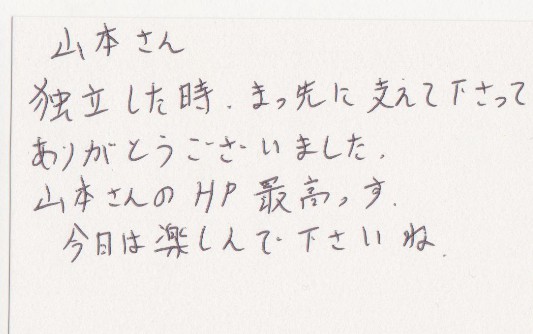 山本さん
独立した時、まっ先に支えて下さって
ありがとうございました、
山本さんのHP最高っす、
今日は楽しんで下さいね、